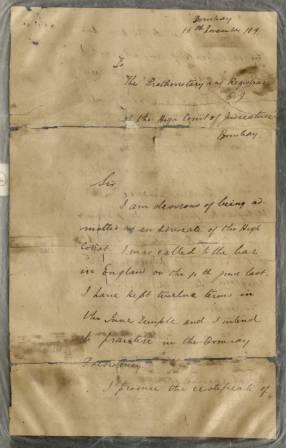 Bombay
16th November 189
To
The Prothonotary and Registrar
of the High Court of Judicature
Bombay
Sir,
I am desirous of being ad-
mitted as an Advocate of the High
Court. I was called to the bar
in England on the 10th June last.
I have kept twelve terms in
the Inner Temple and I intend
to practise in the Bombay
Presidency.
I produce the certificate of